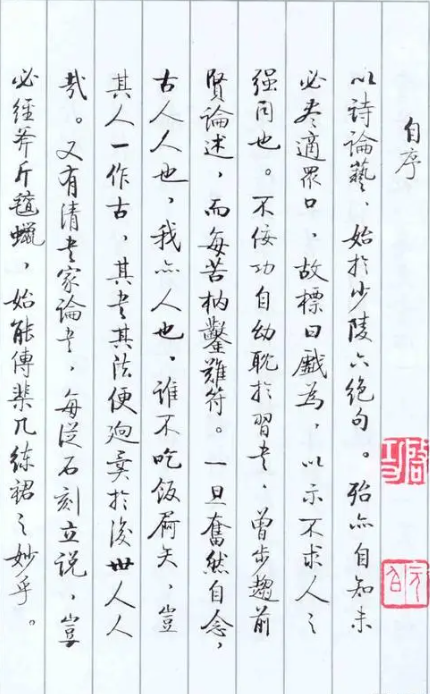 自序
以詩論藝，始於少陵六絕句。殆亦自知未
必盡適眾口，故標曰戲為，以示不求人之
强同也。不佞功自幼耽於習書，曾步趨前
賢論述，而每苦枘鑿難符。一旦奮然自念，
古人人也，我亦人也，誰不吃飯屙矢，豈
其人一作古，其書其法便迥異於後世人人
哉。又有清書家論書，每從石刻立說，豈
必經斧斤氈蠟，始能傳棐几練裙之妙乎。
啟功
元白